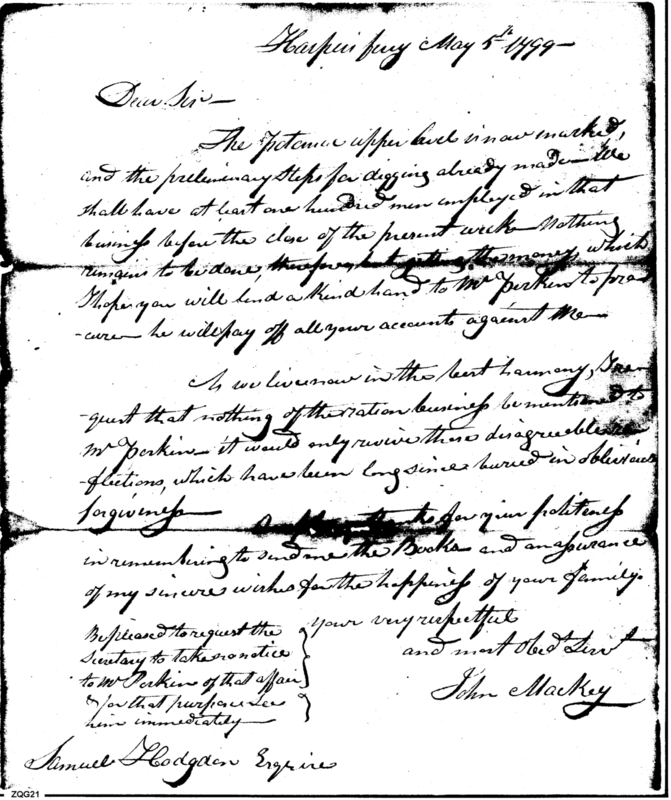 Harpers ferry May 5th 1799—
Dear Sir—
The Potomac upper level is now marked,
and the preliminary steps for digging already made— We
shall have at least one hundred men employed in that
business before the close of the present week— Nothing
remains to be done, therefore, but getting the money, which
I hope you will lend a kind hand to Mr Perkin to pro-
-cure— he will pay off all your accounts against me—
As we live now in the best harmony, I re-
-quest that nothing of the ration business be mentioned to
Mr Perkin— it would only revive those disagreeable re-
-flections, which have been long since buried in oblivious
forgiveness—
for your politeness
in remembering to send me the Books and an assurance
of my sincere wishes for the happiness of your family.
your very respectful
and most Obedt Servt
John Mackey
Be pleased to request the
Secretary to take no notice
to Mr Perkin of that affair
& for that purpose see
him immediately—
Samuel Hodgdon Esquire
ZQG21